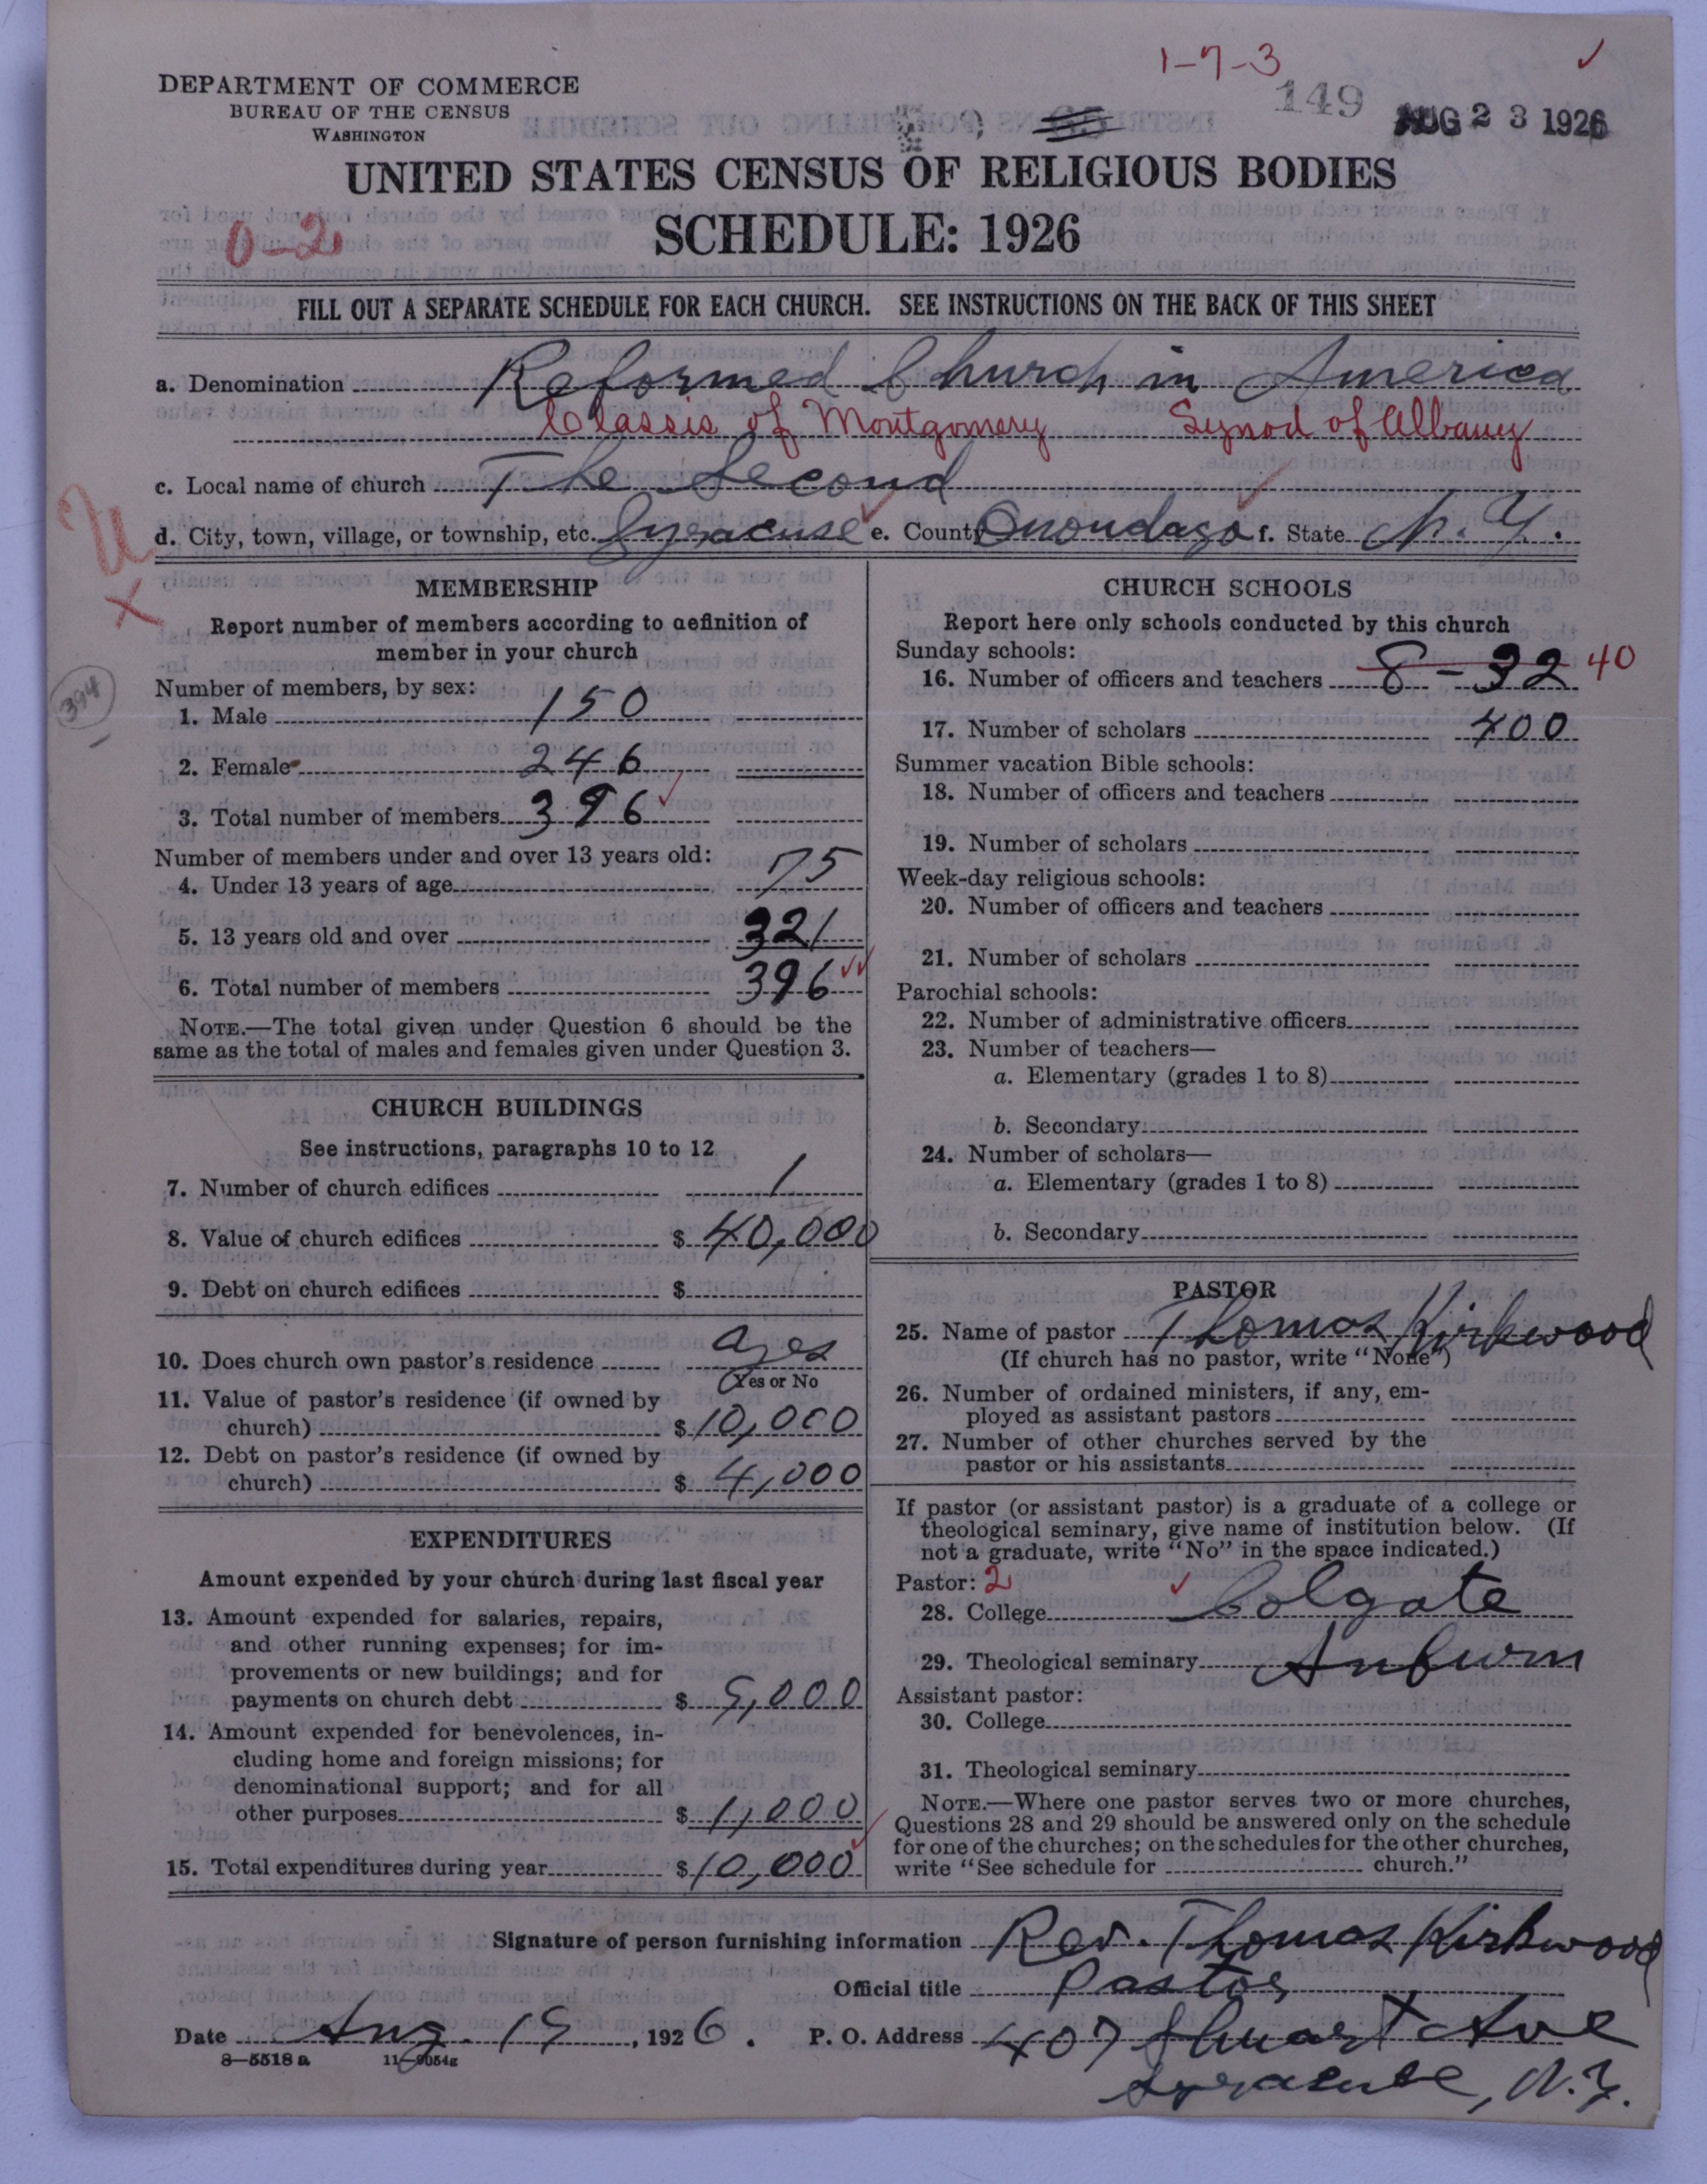 1-7-3
149
AUG 23 1926
DEPARTMENT OF COMMERCE
BUREAU OF THE CENSUS
WASHINGTON
UNITED STATES CENSUS OF RELIGIOUS BODIES
SCHEDULE: 1926
0-2
FILL OUT A SEPARATE SCHEDULE FOR EACH CHURCH. SEE INSTRUCTIONS ON THE BACK OF THIS SHEET
a. Denomination Reformed Church in America
Classis of Montgomery Synod of Albany
c. Local name of church The Second
d. City, town, village, or township, etc. Syracuse e. County Onondaga f. State N. Y.
MEMBERSHIP
Report number of members according to definition of
member in your church
Number of members, by sex:
1. Male 150
394
2. Female 246
3. Total number of members 396
Number of members under and over 13 years old:
4. Under 13 years of age 75
5. 13 years old and over 321
6. Total number of members 396
NOTE.—The total given under Question 6 should be the
same as the total of males and females given under Question 3.
CHURCH BUILDINGS
See instructions, paragraphs 10 to 12
7. Number of church edifices 1
8. Value of church edifices $ 40,000
9. Debt on church edifices $
10. Does church own pastor's residence yes
Yes or No
11. Value of pastor's residence (if owned by
church) $ 10,000
12. Debt on pastor's residence (if owned by
church) $ 4,000
EXPENDITURES
Amount expended by your church during last fiscal year
13. Amount expended for salaries, repairs,
and other running expenses; for im-
provements or new buildings; and for
payments on church debt $ 9,000
14. Amount expended for benevolences, in-
cluding home and foreign missions; for
denominational support; and for all
other purposes $ 1,000
15. Total expenditures during year $ 10,000
CHURCH SCHOOLS
Report here only schools conducted by this church
Sunday schools:
16. Number of officers and teachers 8 - 32 40
17. Number of scholars 400
Summer vacation Bible schools:
18. Number of officers and teachers
19. Number of scholars
Week-day religious schools:
20. Number of officers and teachers
21. Number of scholars
Parochial schools:
22. Number of administrative officers
23. Number of teachers—
a. Elementary (grades 1 to 8)
b. Secondary
24. Number of scholars—
a. Elementary (grades 1 to 8)
b. Secondary
PASTOR
25. Name of pastor Thomas Kirkwood
(If church has no pastor, write "None")
26. Number of ordained ministers, if any, em-
ployed as assistant pastors
27. Number of other churches served by the
pastor or his assistants
If pastor (or assistant pastor) is a graduate of a college or
theological seminary, give name of institution below. (If
not a graduate, write "No" in the space indicated.)
Pastor: 2
28. College Colgate
29. Theological seminary Auburn
Assistant pastor:
30. College
31. Theological seminary
NOTE.—Where one pastor serves two or more churches,
Questions 28 and 29 should be answered only on the schedule
for one of the churches; on the schedules for the other churches,
write "See schedule for church."
Signature of person furnishing information Rev. Thomas Kirkwood
Official title Pastor
Date Aug. 19, 1926. P. O. Address 407 Stuart Ave
8-5518a 11-9054g
Syracuse, N.Y.